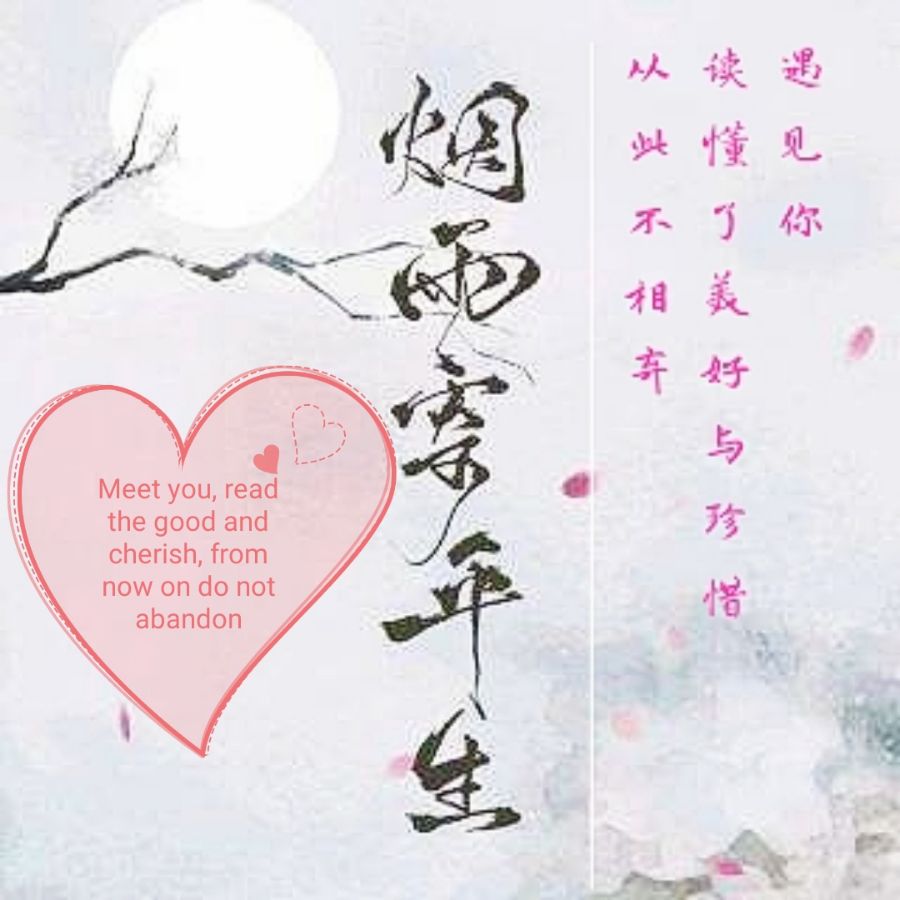 遇见你
读懂了美好与珍惜
从此不相弃
烟雨生
Meet you, read
the good and
cherish, from
now on do not
abandon